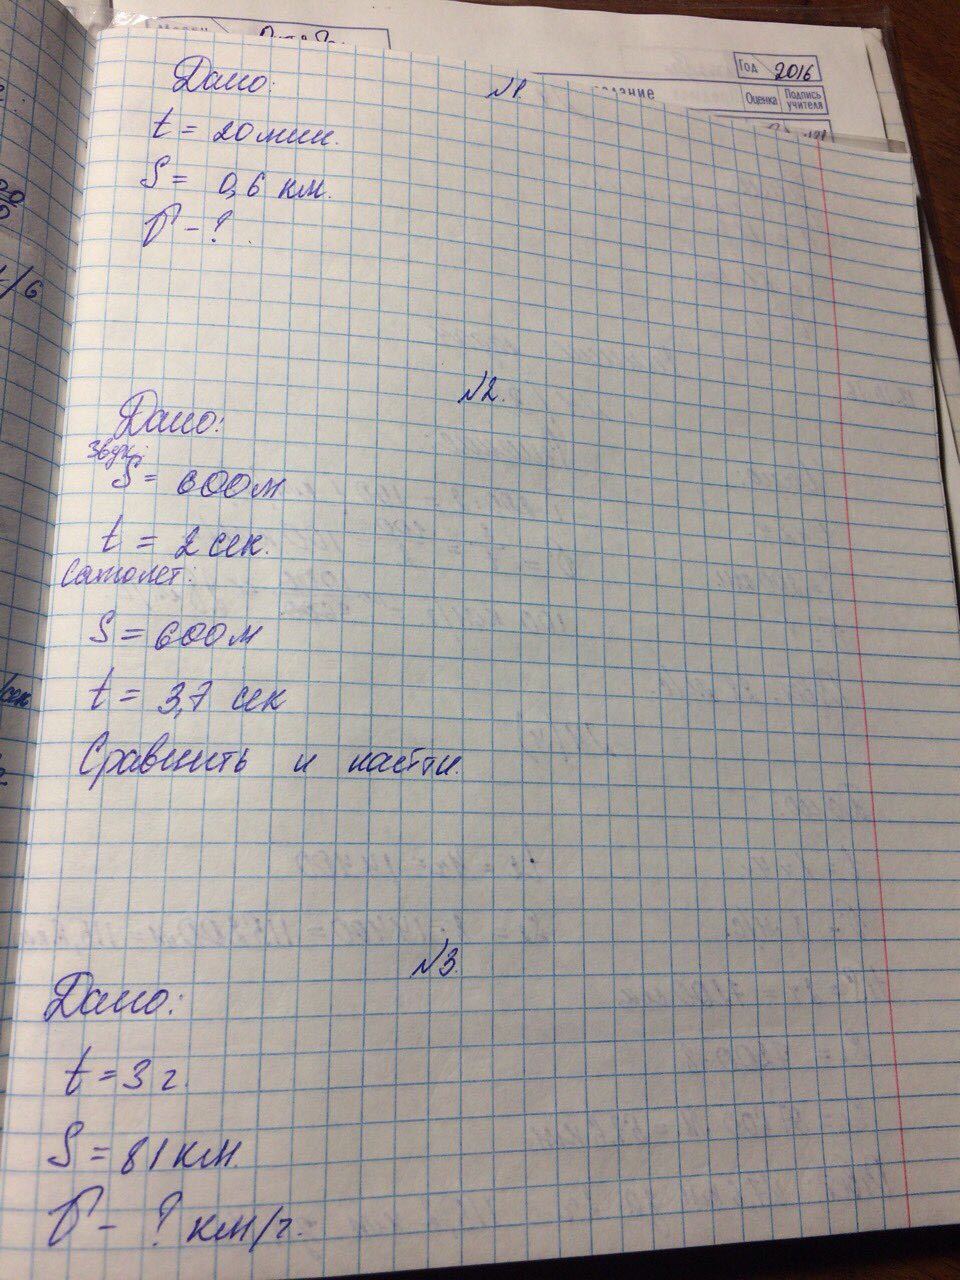 Год 2016
Оценка
Подпись
учителя
№1.
Дано:
t = 20 мин.
S = 0,6 км.
V - ?
№2.
Дано:
Звук:
S = 600 м
t = 2 сек.
Самолет:
S = 600 м
t = 3,7 сек
Сравнить и найти.
№3.
Дано:
t = 3 г.
S = 81 км.
V - ? км/г.